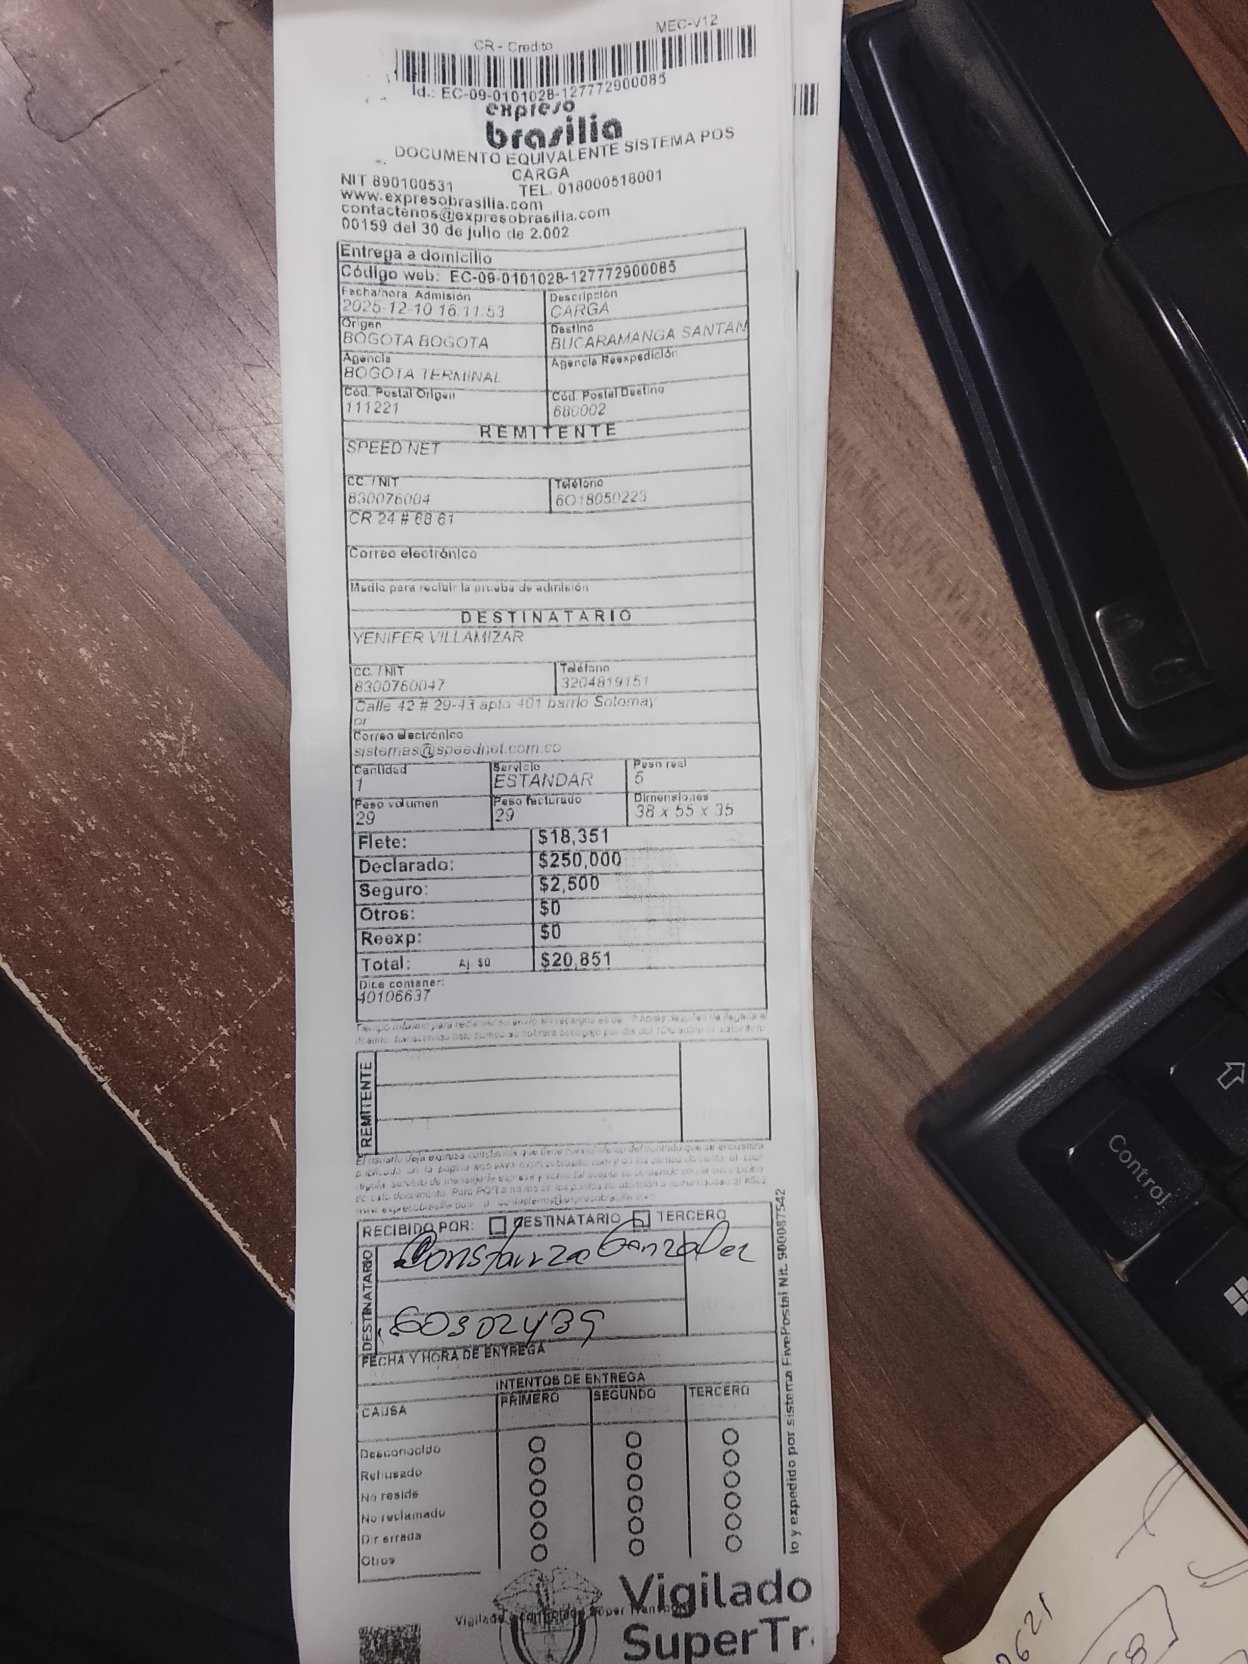 MEC-V12
CR - Credito
Id.: EC-09-0101028-127772900085
expreso
brasilia
DOCUMENTO EQUIVALENTE SISTEMA POS
CARGA
NIT 890100531 TEL. 018000518001
www.expresobrasilia.com
contactenos@expresobrasilia.com
00159 del 30 de julio de 2.002
Entrega a domicilio
Código web: EC-09-0101028-127772900085
Fecha/hora Admisión Descripción
2025-12-10 16:11:53 CARGA
Origen Destino
BOGOTA BOGOTA BUCARAMANGA SANTAN
Agencia Agencia Reexpedición
BOGOTA TERMINAL
Cód. Postal Origen Cód. Postal Destino
111221 680002
REMITENTE
SPEED NET
CC. / NIT Teléfono
830076004 6018050223
CR 24 # 68 61
Correo electrónico
Medio para recibir la prueba de admisión
DESTINATARIO
YENIFER VILLAMIZAR
CC. / NIT Teléfono
8300760047 3204819151
Calle 42 # 29-43 apto 401 barrio Sotomay
or
Correo electrónico
sistemas@speednet.com.co
Cantidad Servicio Peso real
1 ESTANDAR 5
Peso volumen Peso facturado Dimensiones
29 29 38 x 55 x 35
Flete: $18,351
Declarado: $250,000
Seguro: $2,500
Otros: $0
Reexp: $0
Total: Aj $0 $20,851
Dice contener:
40106637
REMITENTE
RECIBIDO POR: DESTINATARIO TERCERO
DESTINATARIO
Constanza Gonzalez
60302439
FECHA Y HORA DE ENTREGA
INTENTOS DE ENTREGA
CAUSA PRIMERO SEGUNDO TERCERO
Desconocido
Rehusado
No reside
No reclamado
Dir errada
Otros
lo y expedido por sistema FivePostal Nit. 900087542
Vigilado
SuperTr
Control